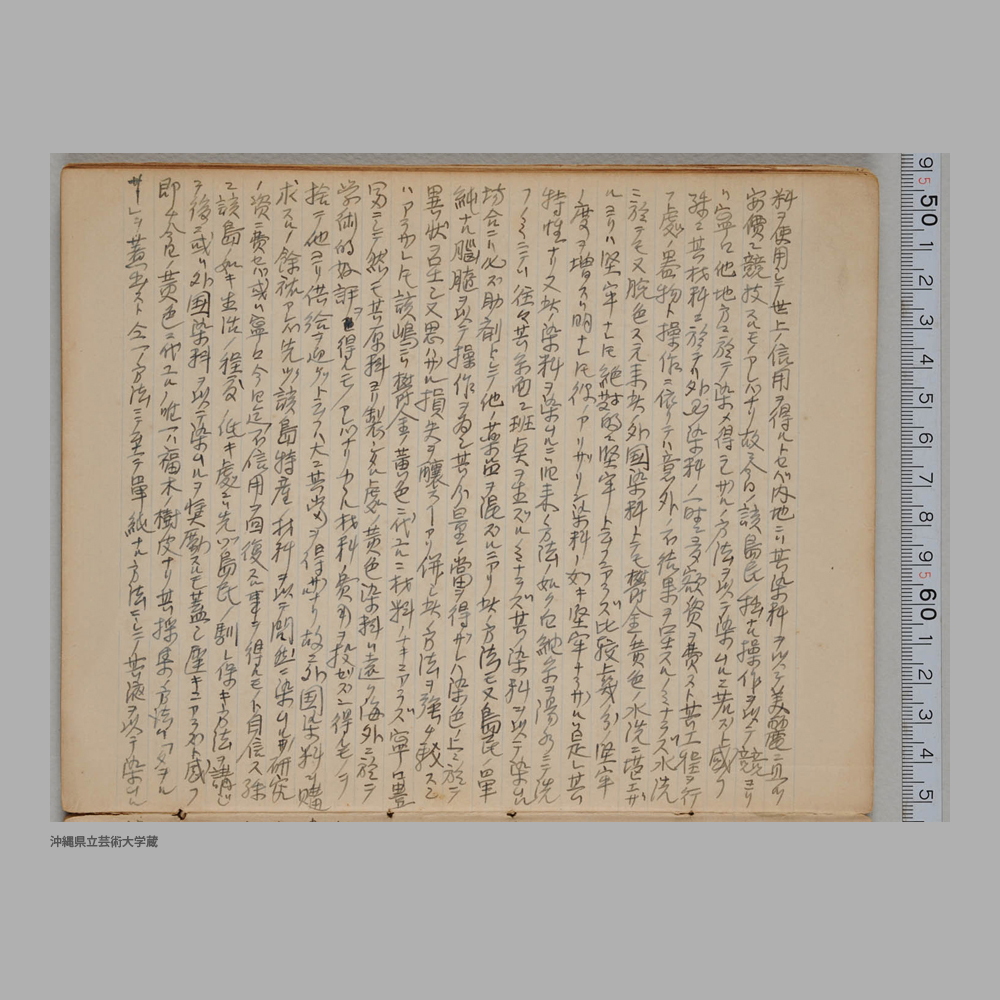 料ヲ使用シテ世上ノ信用ヲ得ルトセバ内地ニハ其染料ヲ以テ美麗ニ且ツ
安價ニ競技スルモノアレバナリ故ニ今日ノ該島民ノ拙ナル操作ヲ以テ競フヨリ
ハ寧ロ他地方ニ於テ染メ得ラレザル方法ヲ以テ染ムルニ若カズト感ズ
殊ニ其材料ニ於テハ外国染料ノ一時ニ多額ノ資ヲ費スト其工程ヲ行
フ處ノ器物ト操作ニ依リテハ意外ノ不結果ヲ呈スルノミナラズ水洗
ニ於テモ又脱色ス元来外国染料トテモ欝金黄色ノ水洗ニ堪エザ
ルヨリハ堅牢ナレドモ絶対的ニ堅牢ト云フニアラズ比較上幾分ノ堅牢
ノ度ヲ増スハ明ナレド彼ノアリザリン染料ノ如キ堅牢ナラザルハ是レ其
特性ナリ又此ノ染料ヲ染ムルニ従来ノ方法ノ如ク白紬糸ヲ湯水ニテ洗
フノミニテハ往々其糸面ニ班点ヲ生ズルノミナラズ其染料ヲ以テ染ムル
場合ニハ必ズ助剤トシテ他ノ薬品ヲ混スルニアリ此ノ方法モ又島民ノ單
純ナル腦髄ヲ以テ操作ヲ為シ其分量ノ當ヲ得ザレバ染色ノ上ニ於テ
異状ヲ呈シ又思ハザル損失ヲ醸スーアリ併シ此ノ方法ヲ強
ハアラザレドモ該嶋ニハ欝金ノ黄色ニ代ユルニ材料ノナキニアラズ寧ロ豊
冨ニシテ然モ其原料ヨリ製シタル處ノ黄色染料ハ遠ク海外ニ於テ
学術的好評ヲ得シモノアレバナリカヽル材料ノ費用ヲ投ゼズシテ得ルモノヲ
捨テ他ヨリ供給ヲ迎ガントスルハ大ニ其当ヲ得ザルナリ故ニ外国染料ヲ購
求スルノ餘裕アレバ先ヅ該島特産ノ材料ヲ以テ間然ニ染ムルノ研究
ノ資ニ費セバ或ハ寧ロ今日迄ノ不信用ヲ回復スル事ヲ得ルモノト自信ス殊
ニ該島ノ如キ生活ノ程度ノ低キ處ニハ先ヅ島民ノ馴レ傑キ方法ヲ講ジ
テ後ニ或ハ外国染料ヲ以テ染ムルヲ奨勵スルモ蓋シ遅キニアラズト感ズ
即チ今色ノ黄色ニ代ユルノ唯一ハ福木ノ樹皮ナリ其採集ノ方法
サレシ蓋出スト今一方法ニ至テ單純ナル方法ニシテ其液ヲ以テ染ムル
沖縄県立芸術大学蔵